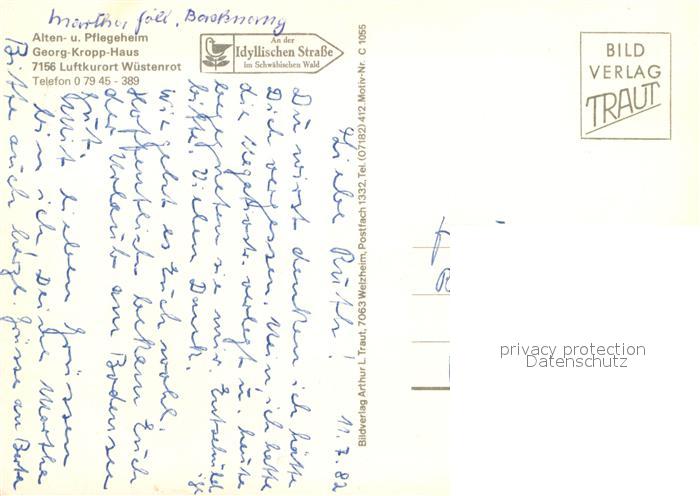 Martha Föll, Backnang
Alten- u. Pflegeheim
Georg-Kropp-Haus
7156 Luftkurort Wüstenrot
Telefon 0 79 45 - 389
An der
Idyllischen Straße
im Schwäbischen Wald
BILD
VERLAG
TRAUT
Bildverlag Arthur L. Traut, 7063 Welzheim, Postfach 1332, Tel. (07182) 412. Motiv-Nr. C 1055
11.7.82
Liebe Ruth!
Du wirst denken ich hätte
Dich vergessen. Nein, ich hatte
die Negativstr. verlegt u. heute
begegneten sie mir. Entschuldige
bitte! Vielen Dank.
Wie geht es Euch wohl.
Hoffentlich bekam Euch
der Urlaub am Bodensee
gut.
Mit lieben Grüssen
bin ich Deine Martha
Bitte auch herzl. Grüsse an Berta
privacy protection
Datenschutz